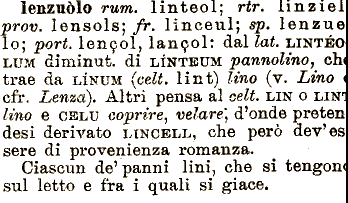 lenzuòlo rum. linteol; rtr. linziel
prov. lensols; fr. linceul; sp. lenzue
lo; port. lençol, lançol: dal lat. LINTÉO-
LUM diminut. di LÍNTEUM pannolino, che
trae da LÍNUM (celt. lint) lino (v. Lino e
cfr. Lenza). Altri pensa al celt. LIN O LINT
lino e CELU coprire, velare; d'onde preten
desi derivato LINCELL, che però dev'es
sere di provenienza romanza.
Ciascun de' panni lini, che si tengono
sul letto e fra i quali si giace.